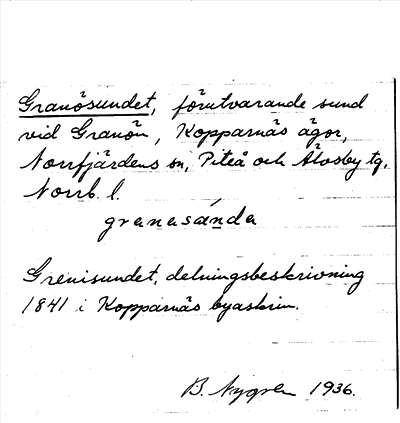 Granösundet, förutvarande sund
vid Granön, Kopparnäs ägor,
Norrfjärdens sn, Piteå och Älvsby tg,
Norrb. l.
granasánda
Grenisundet, delningsbeskrivning
1841 i Kopparnäs byaskrin.
B. Nygren 1936.